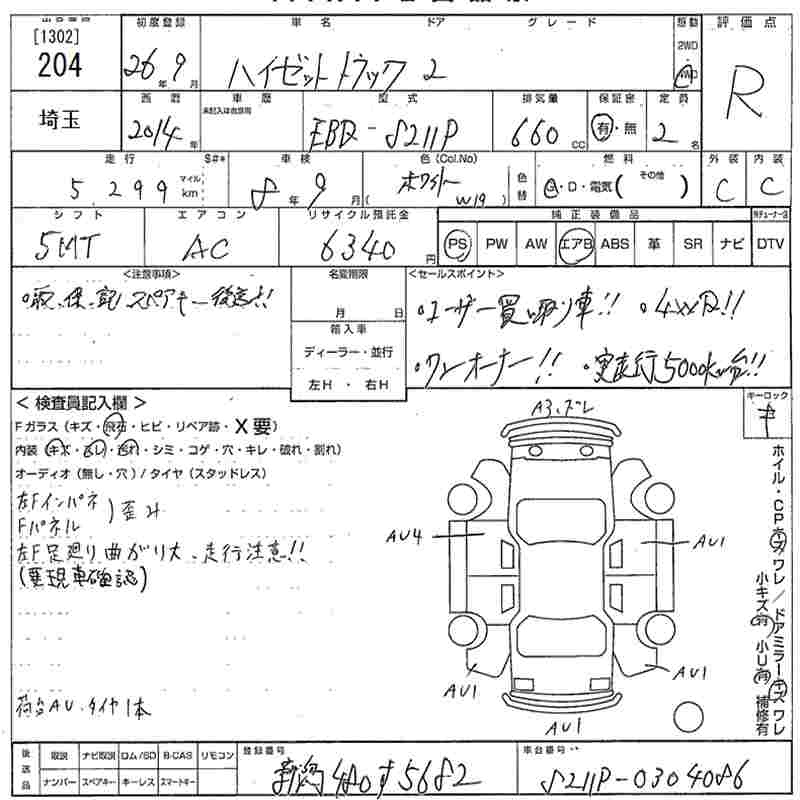 [1302]
204
初度登録
26年9月
車名 ドア グレード
ハイゼットトラック 2
駆動
2WD
4WD
評価点
R
埼玉
西暦
2014年
車歴
未記入は自家用
型式
EBD-S211P
排気量
660cc
保証書
有・無
定員
2名
走行
5,299
マイル
km
S#*
車検
8年9月
色(Col.No)
ホワイト
(W19)
色替
燃料
G・D・電気( その他 )
外装
C
内装
C
シフト
5MT
エアコン
AC
リサイクル預託金
6340円
純正装備品
PS PW AW エアB ABS 革 SR ナビ DTV
<注意事項>
・取、保、記、スペアキー後送り!!
名変期限
月 日
輸入車
ディーラー・並行
左H・右H
<セールスポイント>
・ユーザー買い取り車!! ・4WD!!
・ワンオーナー!! ・実走行5000km台!!
<検査員記入欄>
Fガラス(キズ・飛石・ヒビ・リペア跡・X要)
内装(キズ・スレ・汚れ・シミ・コゲ・穴・キレ・破れ・割れ)
オーディオ(無し・穴)/タイヤ(スタッドレス)
左Fインパネ
Fパネル
)歪ミ
左F足廻り曲がり大、走行注意!!
(要現車確認)
荷台AU、タイヤ1本
A3、ズレ
AU4
AU1
AU1
AU1
AU1
キーロック
キ
ホイル・CPキズワレ/ドアミラーキズワレ
小キズ有 小U有 補修有
後送品
取説 ナビ取説 ロム/SD B-CAS リモコン
ナンバー スペアキー キーレス スマートキー
登録番号
新潟480す5682
車台番号
S211P-0304086